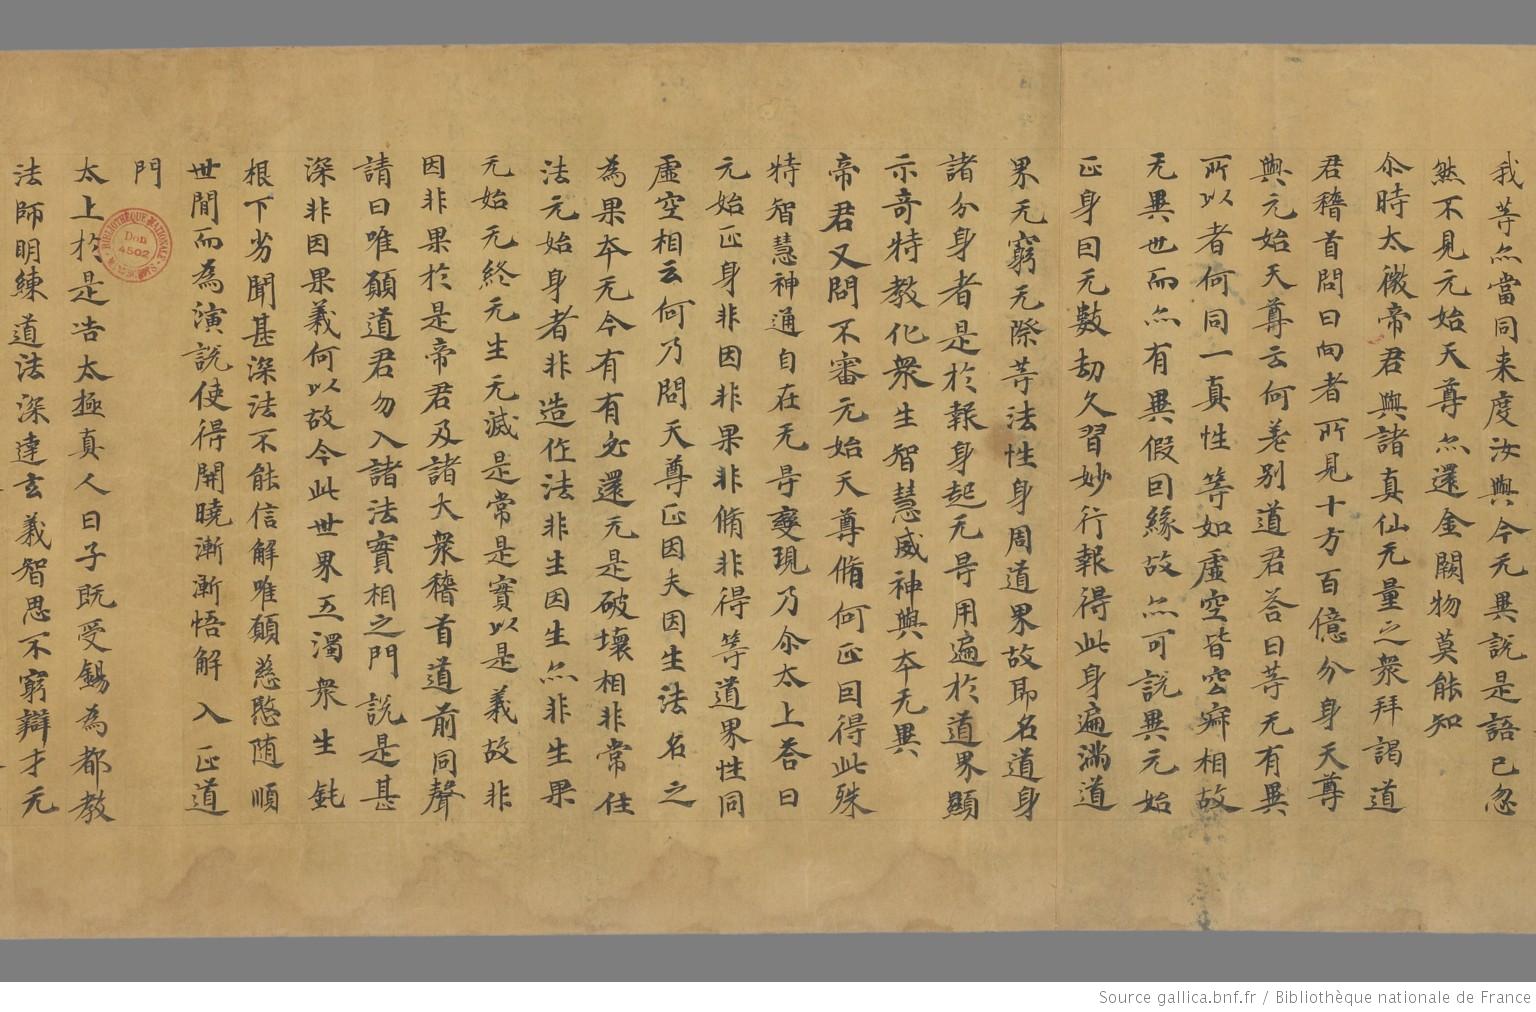 我等亦當同来度汝與今无異說是語已忽
然不見元始天尊亦還金闕物莫能知
尒時太微帝君與諸真仙无量之衆拜謁道
君稽首問曰向者所見十方百億分身天尊
與元始天尊云何差别道君荅曰等无有異
所以者何同一真性等如虛空皆空寂相故
无異也而亦有異假因緣故亦可說異元始
正身曰无數劫久習妙行報得此身遍滿道
界无窮无際等法性身周道界故即名道身
諸分身者是於報身起无㝵用遍於道界顯
示奇特教化衆生智慧威神與本无異
帝君又問不審元始天尊脩何正因得此殊
特智慧神通自在无㝵變現乃尒太上荅曰
元始正身非因非果非脩非得等道界性同
虛空相云何乃問天尊正因夫因生法名之
為果本无今有有必還无是破壞相非常住
法元始身者非造作法非生因生亦非生果
无始无終无生无滅是常是實以是義故非
因非果於是帝君及諸大衆稽首道前同聲
請曰唯願道君勿入諸法實相之門說是甚
深非因果義何以故今此世界五濁衆生鈍
根下劣聞甚深法不能信解唯願慈愍随順
世間而為演說使得開曉漸漸悟解入正道
門
太上於是告太極真人曰子既受錫為都教
法師明練道法深達玄義智思不窮辯才无
BIBLIOTHÈQUE NATIONALE
Don
4502
Source gallica.bnf.fr / Bibliothèque nationale de France